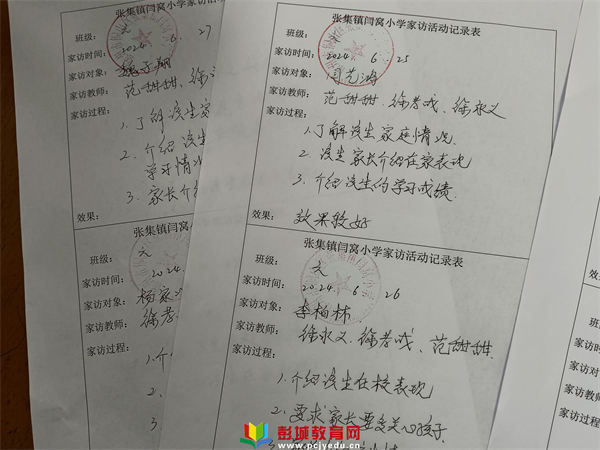 张集镇闫窝小学家访活动记录表
班级: 六
家访时间: 2024. 6. 27
家访对象:
家访教师: 范甜甜、徐
家访过程:
1. 了解该生家
2. 介绍该生
学习情况
3. 家长介绍
效果:
张集镇闫窝小学家访活动记录表
班级: 六
家访时间: 2024.
家访对象: 杨家
家访教师: 徐孝
家访过程:
1. 介
2.
3.
张集镇闫窝小学家访活动记录表
班级:
家访时间: 2024. 6. 25
家访对象: 闫艺鸿
家访教师: 范甜甜、徐孝哦、徐永义
家访过程:
1. 了解该生家庭情况.
2. 该生家长介绍在家表现
3. 介绍该生的学习成绩.
效果: 效果较好
张集镇闫窝小学家访活动记录表
班级: 六
家访时间: 2024. 6. 26
家访对象: 李柏林
家访教师: 徐永义、徐孝哦、范甜甜.
家访过程:
1. 介绍该生在校表现
2. 要求家长要多关心孩子.
班级
家访时
家访对
家访教
家访过
彭城教育网
www.pcjyedu.cn